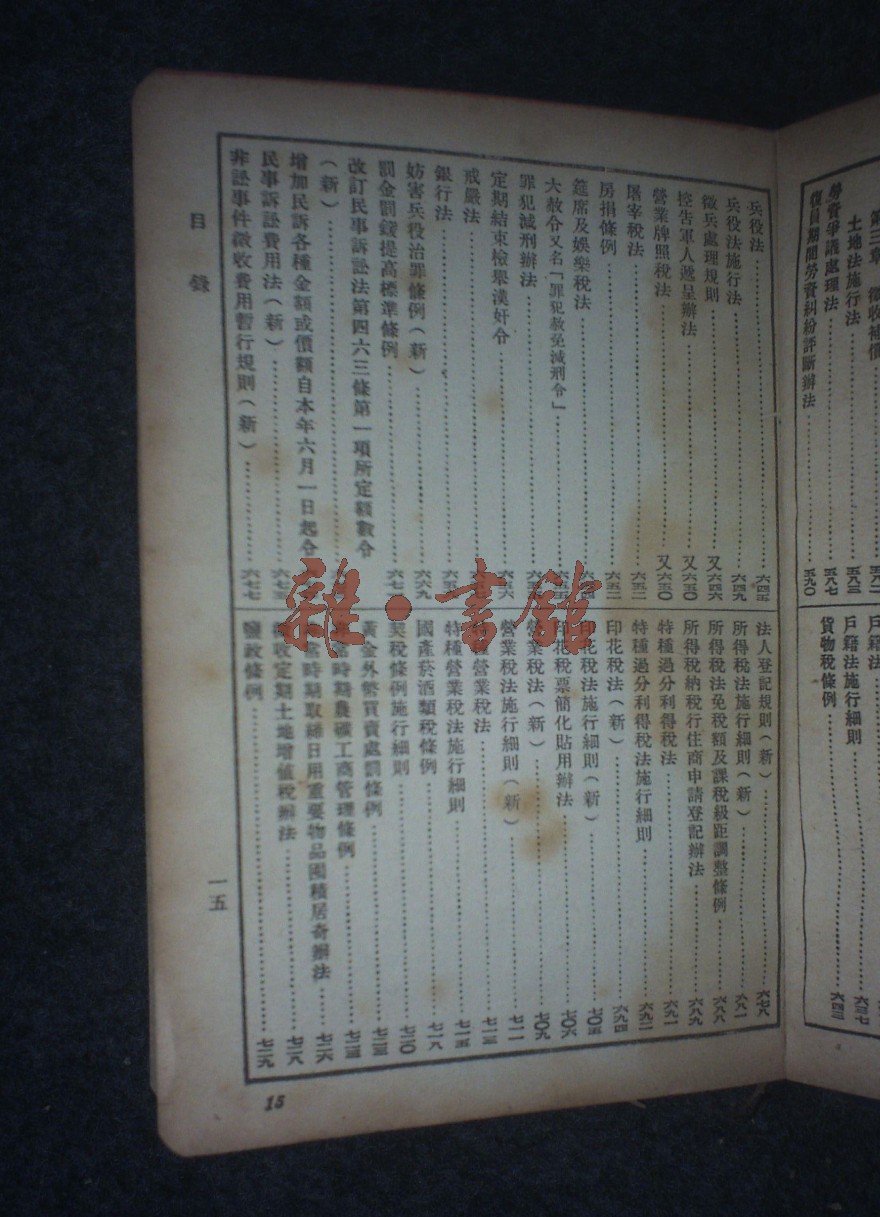 第三章 徵收補償
土地法施行法
勞資爭議處理法
復員期間勞資糾紛評斷辦法
戶籍法
戶籍法施行細則
貨物稅條例
兵役法
兵役法施行法
徵兵處理規則
控告軍人遞呈辦法
營業牌照稅法
屠宰稅法
房捐條例
筵席及娛樂稅法
大赦令又名「罪犯赦免減刑令」
罪犯減刑辦法
定期結束檢舉漢奸令
戒嚴法
銀行法
妨害兵役治罪條例(新)
罰金罰鍰提高標準條例
改訂民事訴訟法第四六三條第一項所定額數令
(新)
增加民訴各種金額或價額自本年六月一日起令
民事訴訟費用法(新)
非訟事件徵收費用暫行規則(新)……六七七
法人登記規則(新)……六七八
所得稅法施行細則(新)……六八一
所得稅法免稅額及課稅級距調整條例……六八八
所得稅納稅行住商申請登記辦法……六八九
特種過分利得稅法……六九一
特種過分利得稅法施行細則……六九二
印花稅法(新)……六九四
印花稅法施行細則(新)……七〇五
印花稅票簡化貼用辦法……七〇六
營業稅法(新)……七〇九
營業稅法施行細則(新)……七一一
特種營業稅法……七一三
特種營業稅法施行細則……七一五
國產菸酒類稅條例……七一八
契稅條例施行細則……七二〇
黃金外幣買賣處罰條例
非常時期農礦工商管理條例
非常時期取締日用重要物品囤積居奇辦法……七二六
徵收定期土地增值稅辦法……七二八
鹽政條例……七二九
目錄
一五
15
雜·書館